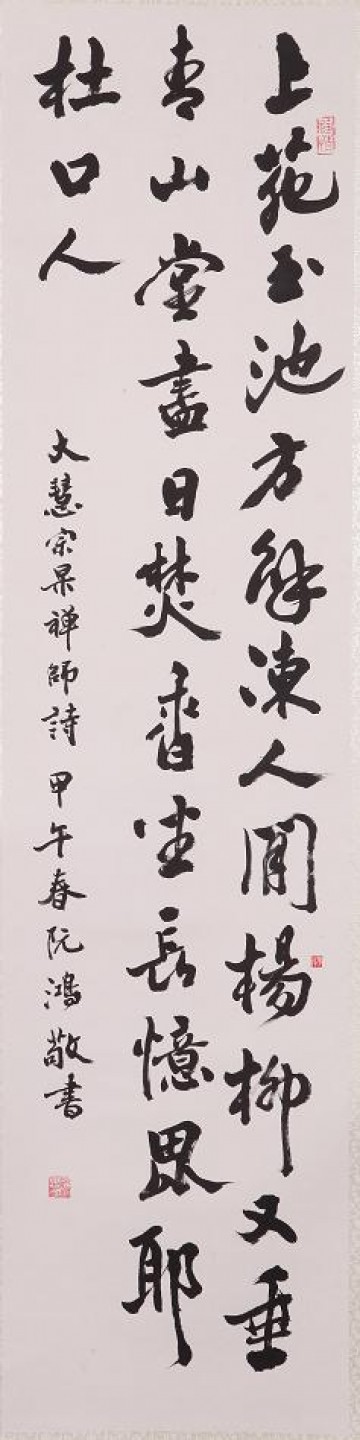 上苑玉池方解凍人間楊柳又垂
春山堂盡日焚香坐長憶毘耶
杜口人
大慧宗杲禅師詩 甲午春阮鴻敬書